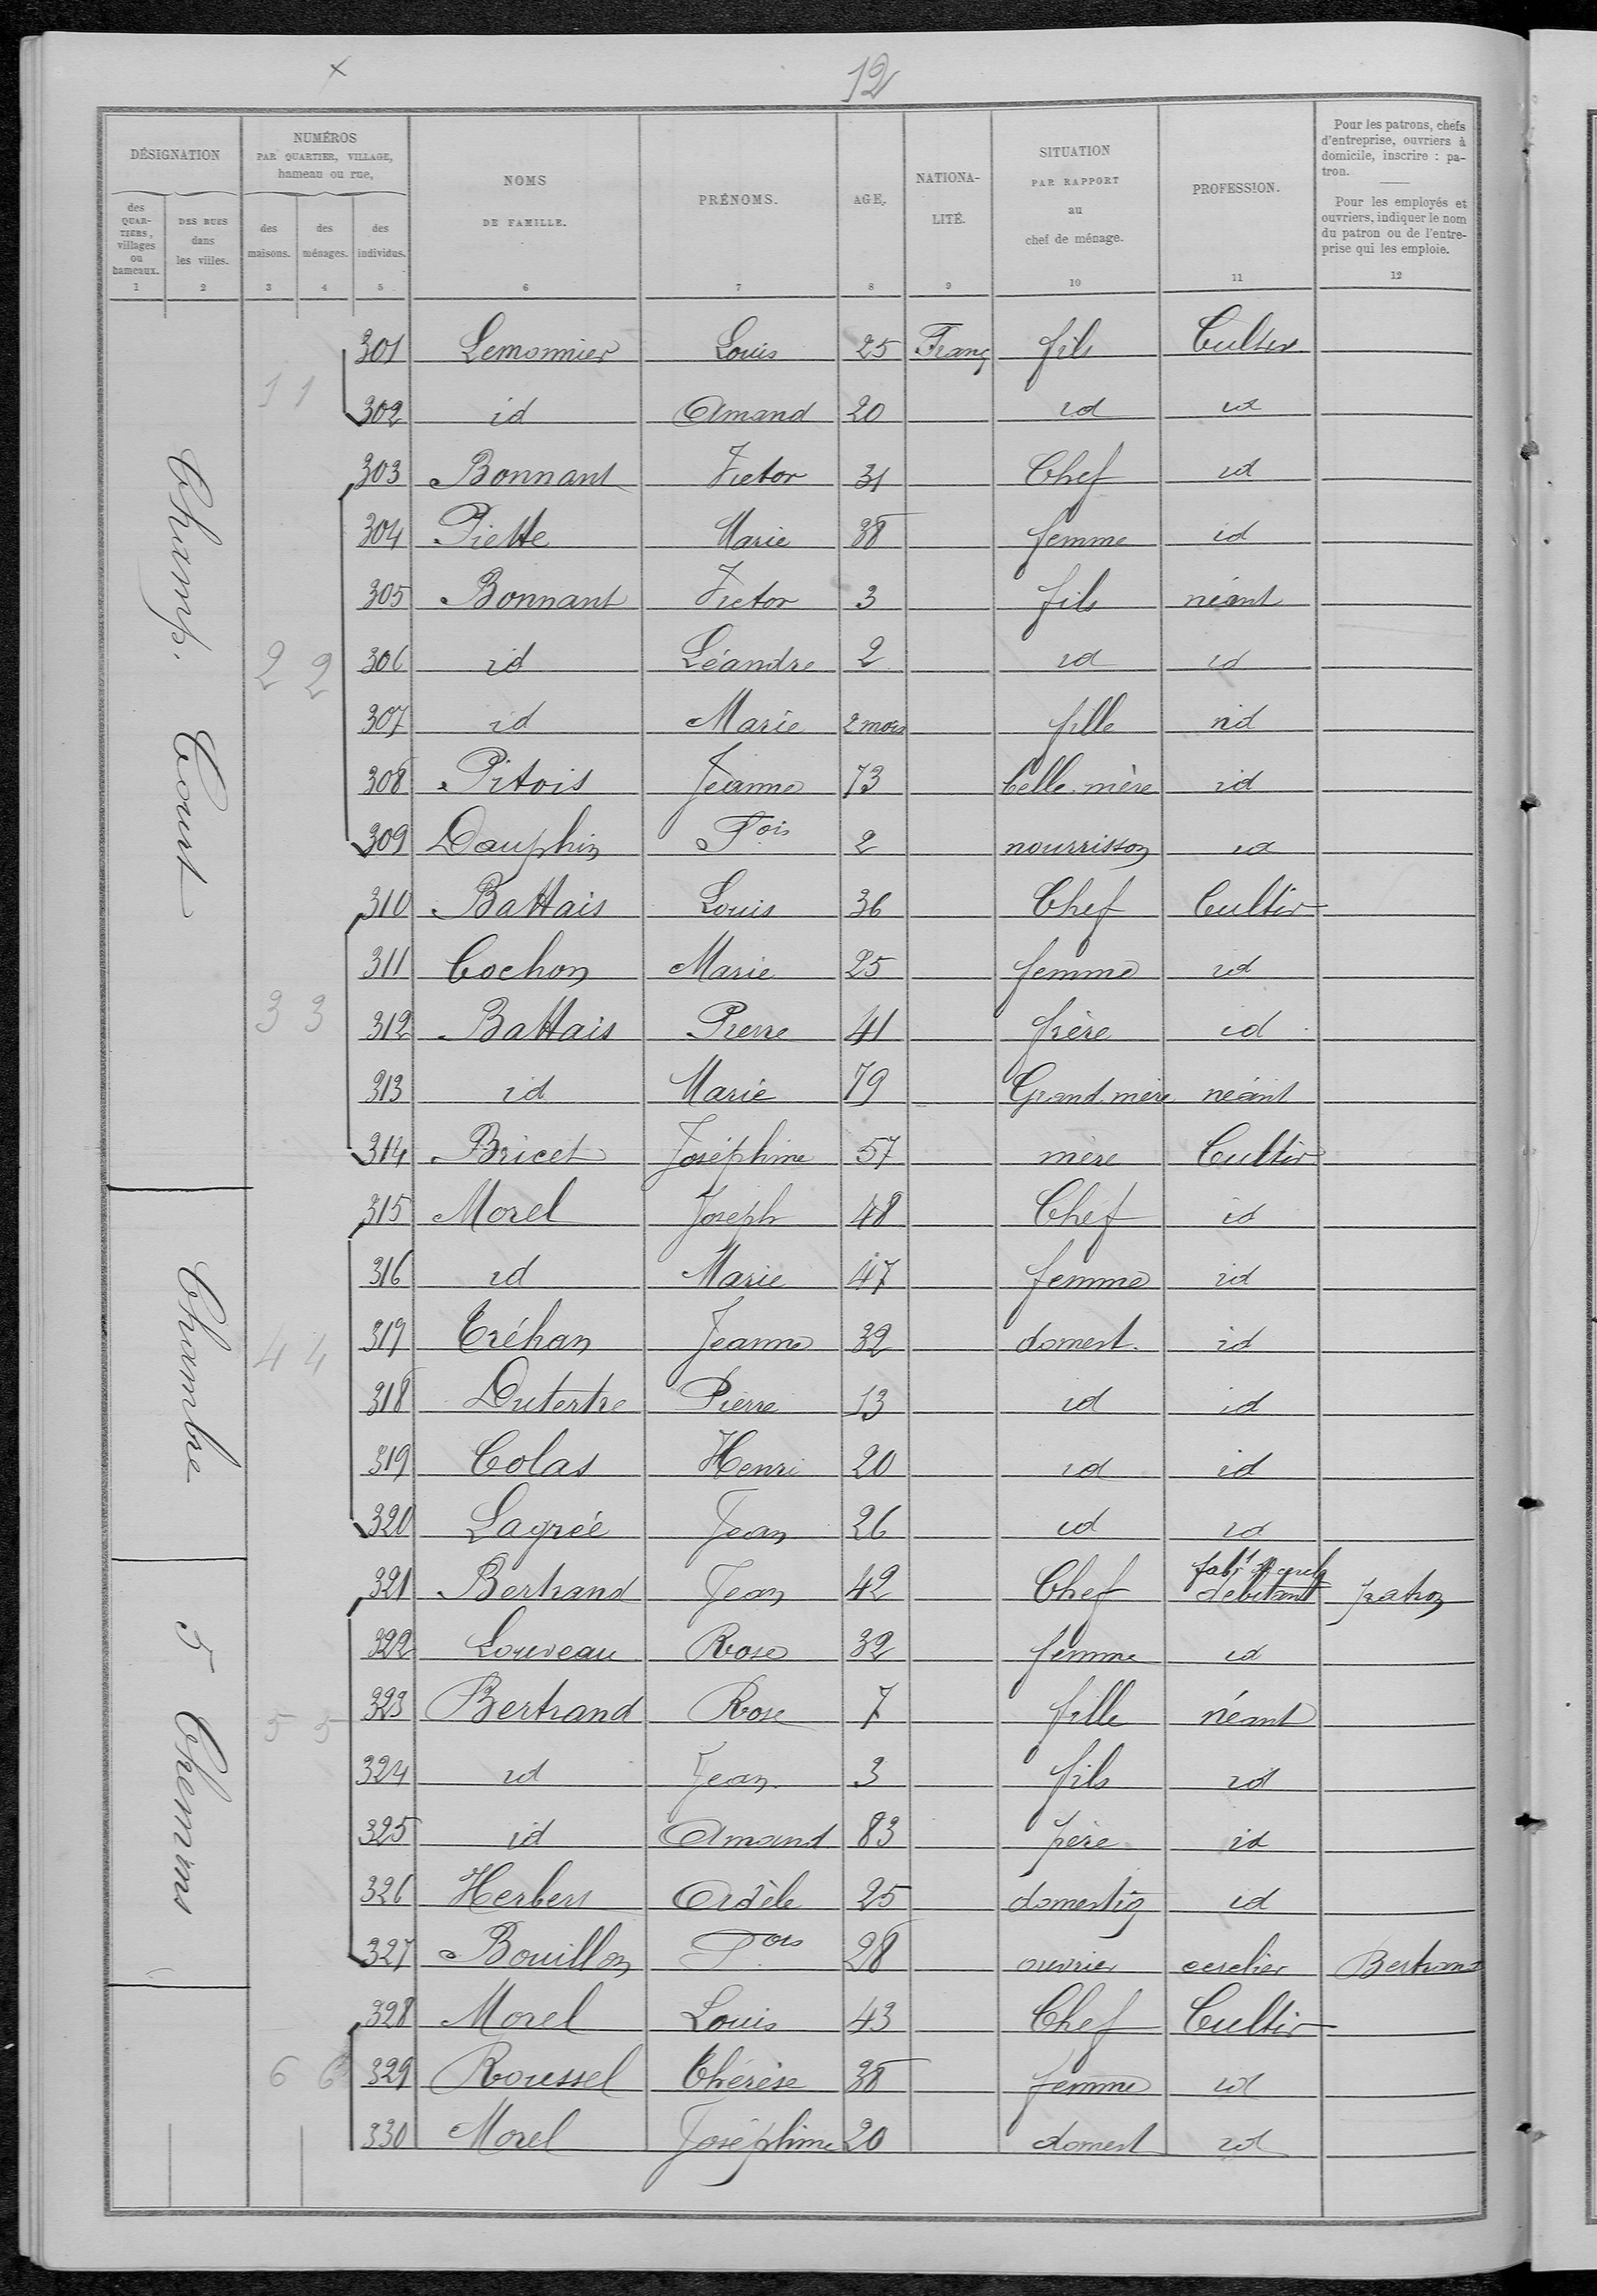 x
12
DÉSIGNATION
NUMÉROS
PAR QUARTIER, VILLAGE,
hameau ou rue,
des
QUAR-
TIERS,
villages
ou
hameaux.
1
DES RUES
dans
les villes.
2
des
maisons.
3
des
ménages.
4
des
individus.
5
NOMS
DE FAMILLE.
6
PRÉNOMS.
7
AGE.
8
NATIONA-
LITÉ.
9
SITUATION
PAR RAPPORT
au
chef de ménage.
10
PROFESSION.
11
Pour les patrons, chefs
d'entreprise, ouvriers à
domicile, inscrire : pa-
tron.
Pour les employés et
ouvriers, indiquer le nom
du patron ou de l'entre-
prise qui les emploie.
12
Champ. Court
1 1
301 Lemonnier Louis 25 Franç fils Cultiv
302 id Amand 20 id id
2 2
303 Bonnant Victor 31 Chef id
304 Piette Marie 38 femme id
305 Bonnant Victor 3 fils néant
306 id Léandre 2 id id
307 id Marie 2 mois fille id
308 Pitois Jeanne 73 belle-mère id
309 Dauphin Fois 2 nourrisson id
3 3
310 Battais Louis 36 Chef Cultiv
311 Cochon Marie 25 femme id
312 Battais Pierre 41 frère id
313 id Marie 79 Grand mère néant
314 Bricet Joséphine 57 mère Cultiv
Chambre
4 4
315 Morel Joseph 48 Chef id
316 id Marie 47 femme id
317 Tréhan Jeanne 32 domest. id
318 Dutertre Pierre 13 id id
319 Colas Henri 20 id id
320 Lagrée Jean 26 id id
5 Chemins
5 5
321 Bertrand Jean 42 Chef débitant patron
322 Louveau Rose 32 femme id
323 Bertrand Rose 7 fille néant
324 id Jean 3 fils id
325 id Amand 83 père id
326 Herbert Adèle 25 domestiq id
327 Bouillon Fois 28 ouvrier cerclier Bertrand
6 6
328 Morel Louis 43 Chef Cultiv
329 Roussel Thérèse 38 femme id
330 Morel Joséphine 20 domest id